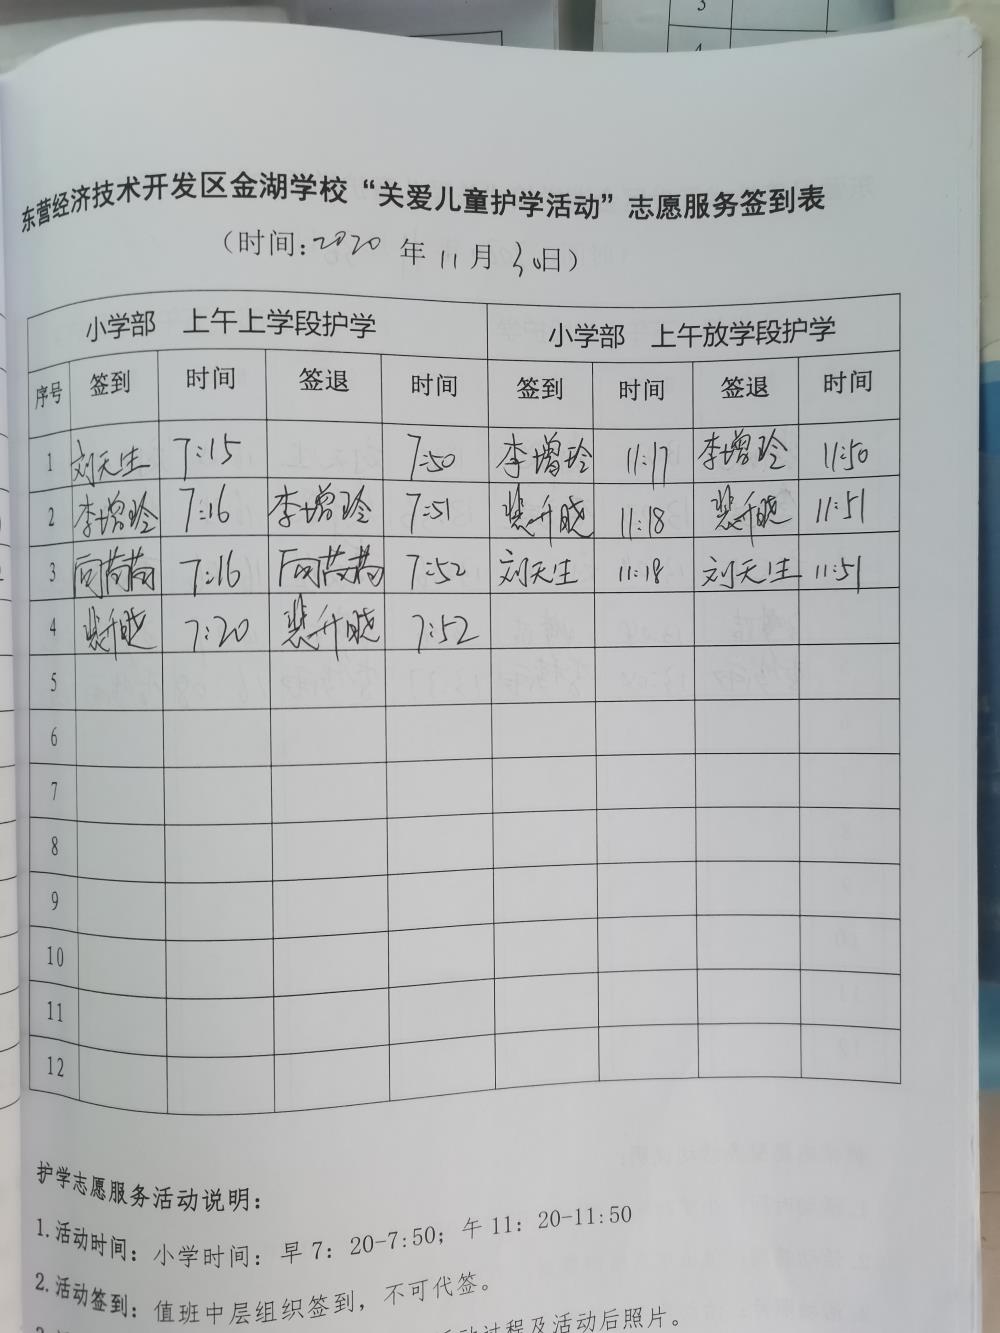 3
4
东营经济技术开发区金湖学校“关爱儿童护学活动”志愿服务签到表
（时间:2020 年 11 月 30日）
小学部 上午上学段护学 小学部 上午放学段护学
序号 签到 时间 签退 时间 签到 时间 签退 时间
1 刘天生 7:15 7:50 李增玲 11:17 李增玲 11:50
2 李增玲 7:16 李增玲 7:51 裴升晓 11:18 裴升晓 11:51
3 7:16 7:52 刘天生 11:18 刘天生 11:51
4 裴升晓 7:20 裴升晓 7:52
5
6
7
8
9
10
11
12
护学志愿服务活动说明：
1.活动时间：小学时间：早7：20-7:50；午11：20-11:50
2.活动签到：值班中层组织签到，不可代签。
过程及活动后照片。